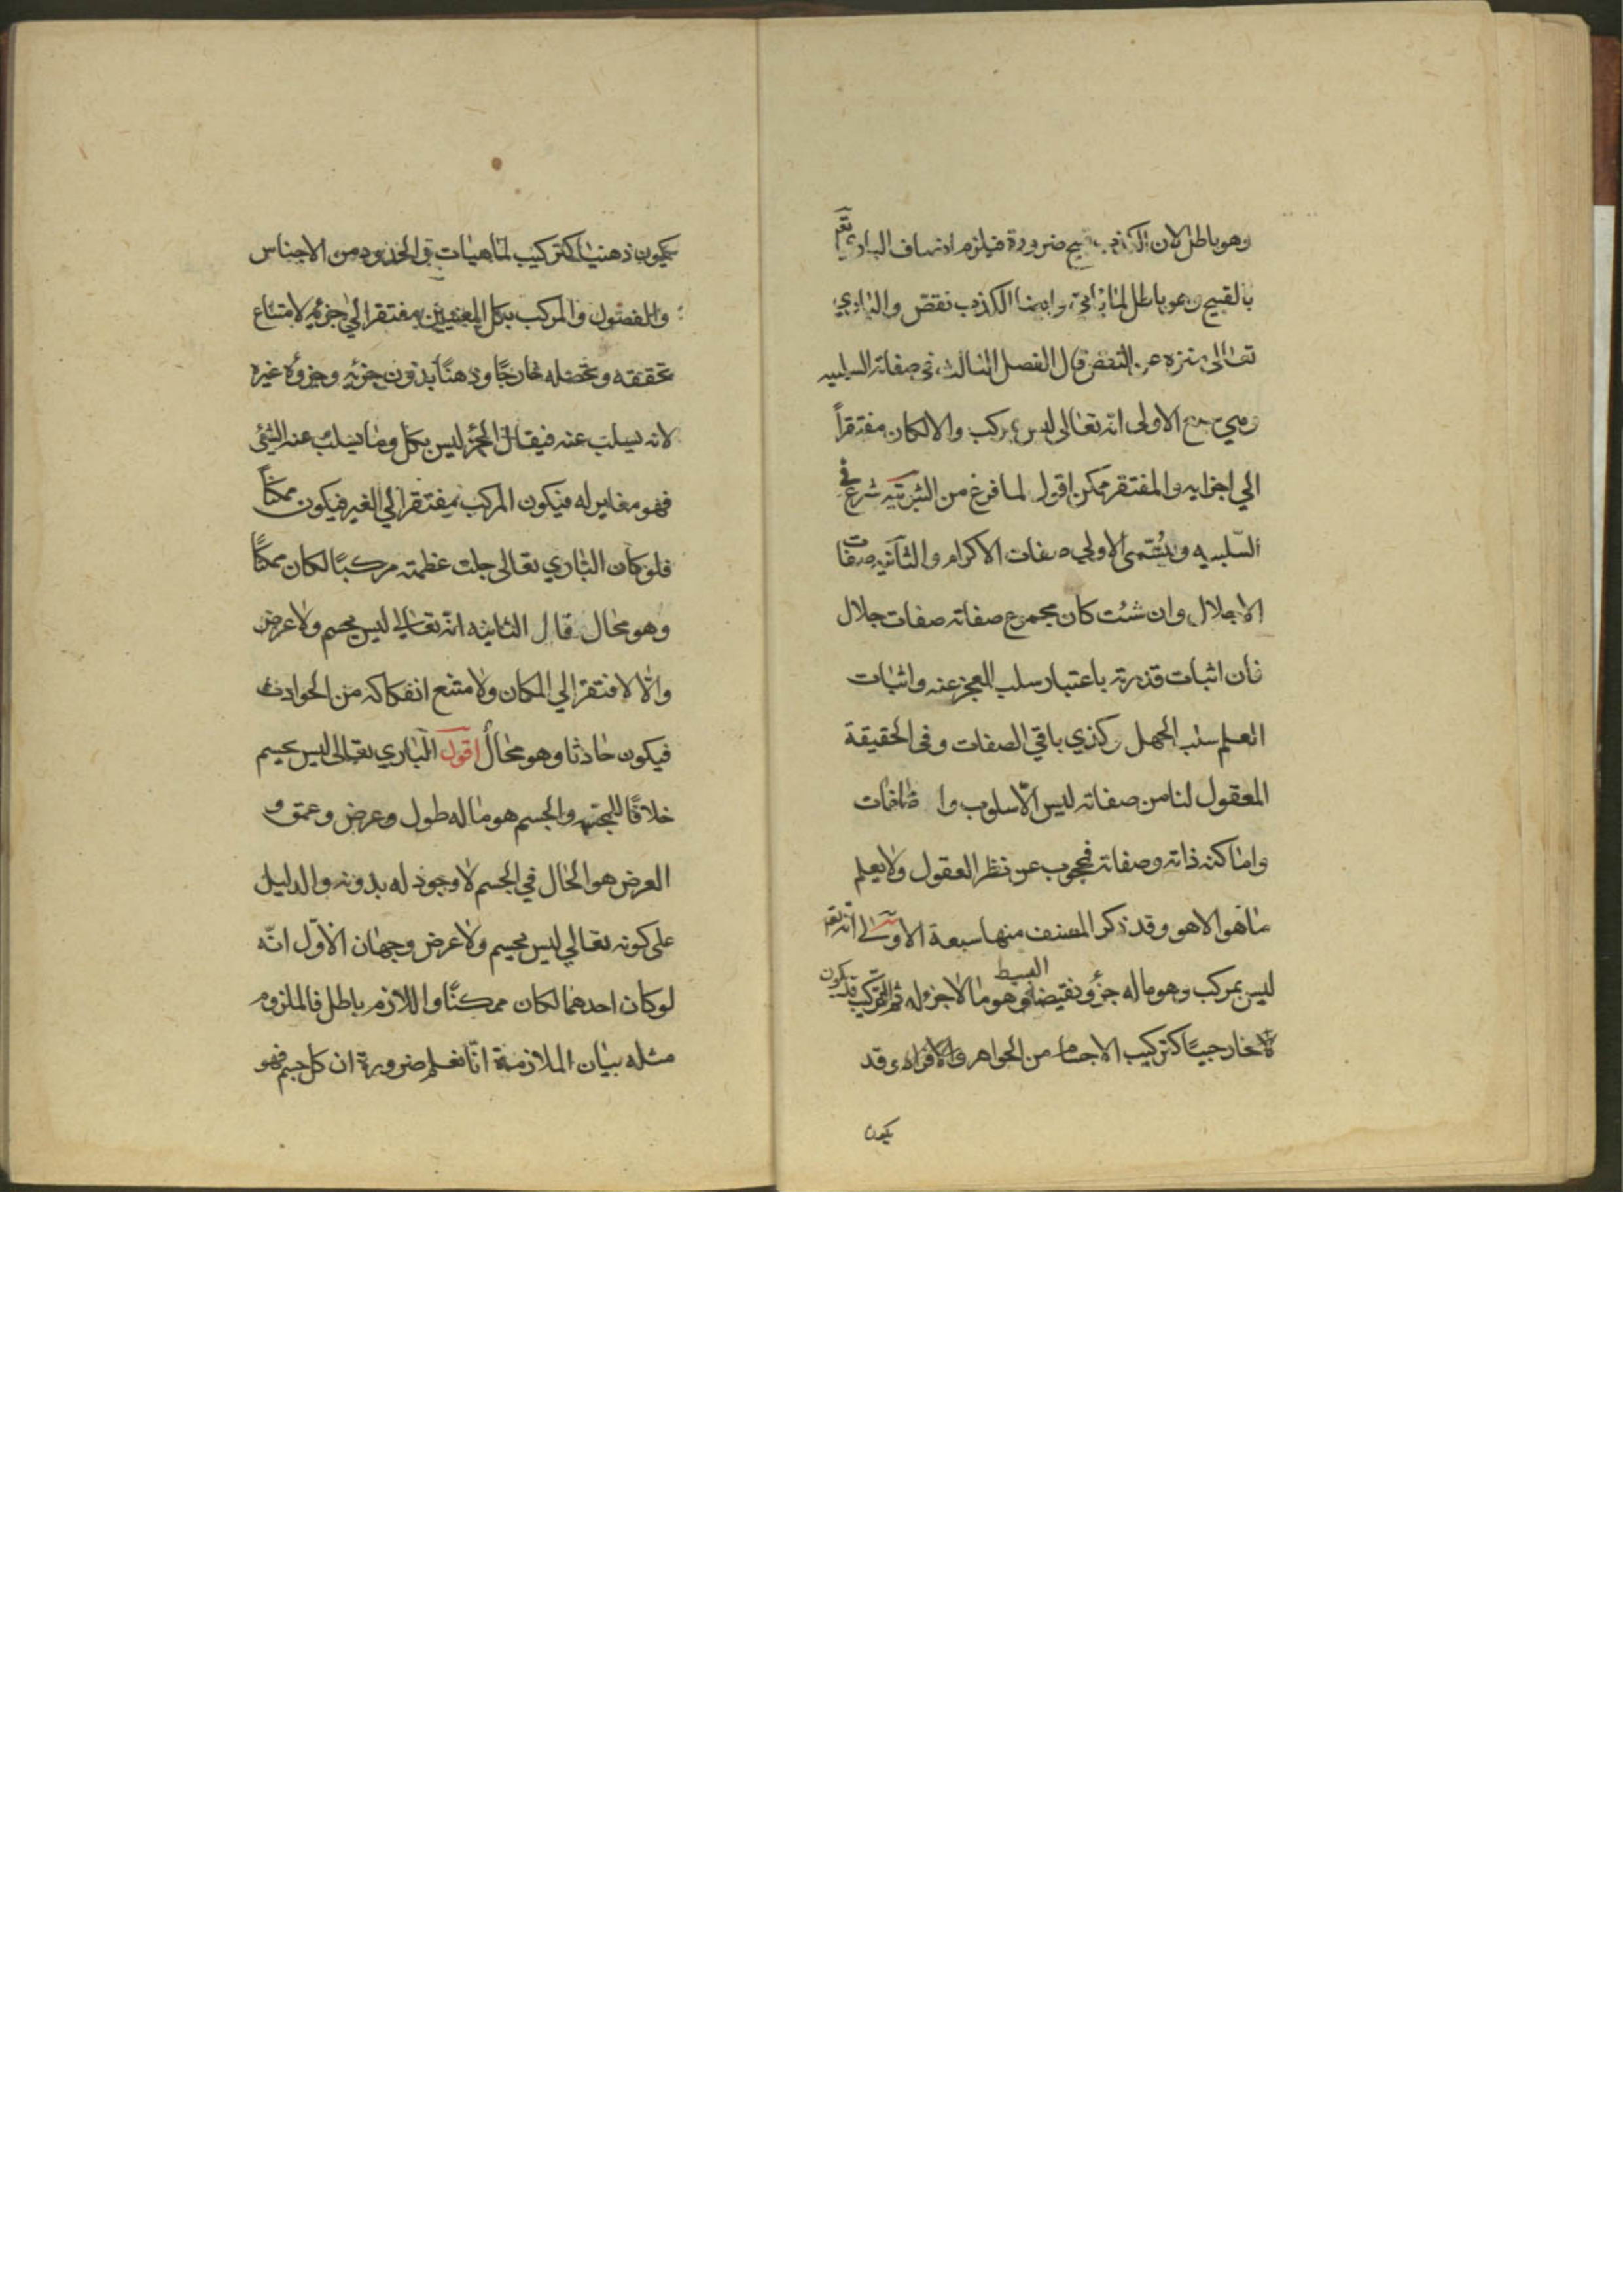 وهو باطل لان الكذب قبيح ضرورة فيلزم اتصاف الباري تعم
بالقبيح وهو باطل لما ياتي وايضا الكذب نقص والباري
تعالى منزه عن النقص قال الفصل الثالث في صفاته السلبيه
وهي سبع الاولى انه تعالى ليس بمركب والا لكان مفتقراً
الي اجزايه والمفتقر ممكن اقول لما فرغ من الثبوتيه شرع في
السّلبيه ويُسّمى الاولي صفات الاكرام والثانيه صفات
الاجلال وان شئت كان مجموع صفاته صفات جلال
فان اثبات قدرته باعتبار سلب العجز عنه واثبات
العلم سلب الجهل وكذي باقي الصفات وفي الحقيقة
المعقول لنا من صفاته ليس الّا سلوب وا ضافات
واما كنه ذاته وصفاته فمحجوب عن نظر العقول ولا يعلم
ما هو الا هو وقد ذكر المصنف منها سبعة الاولى انه تعم
ليس بمركب وهو ما له جزؤ ونقيضه البسيط وهو ما لا جزو له ثم التركيب قد يكون
خارجيًا كتركيب الاجسام من الجواهر والافراد وقد
يكون
يكون ذهنيا كتركيب لماهيات في الحدود من الاجناس
والفصول والمركب بكل المعنيين مفتقر الي جزئه لامتناع
تحققه وتحصله خارجًا وذهنًا بدون جزئه وجزؤه غيره
لانه يسلب عنه فيقال الجزؤ ليس بكل وما يسلب عنه الشئ
فهو مغاير له فيكون المركب مفتقرا الي الغير فيكون ممكناً
فلو كان الباري تعالى جلت عظمته مركبًا لكان ممكنًا
وهو محال قال الثانيه انه تعالي ليس بجسم ولا عرض
والّا لافتقر الي المكان ولامتنع انفكاكه من الحوادث
فيكون حادثا وهو محالٌ اقول الباري تعالى ليس بجسم
خلافًا للمجسّمه والجسم هو ما له طول وعرض وعمق و
العرض هو الحال في الجسم لا وجود له بدونه والدليل
على كونه تعالي ليس بجسم ولا عرض وجهان الاوّل انّه
لو كان احدهما لكان ممكنًا واللازم باطل فالملزوم
مثله بيان الملازمة انّا نعلم ضرورة ان كل جسم فهو